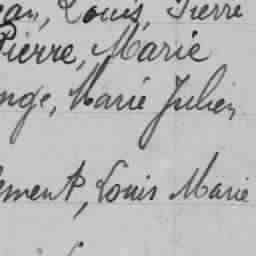 ean, Louis, Pierre
Pierre, Marie
nge, Marie Julien
ement, Louis Marie